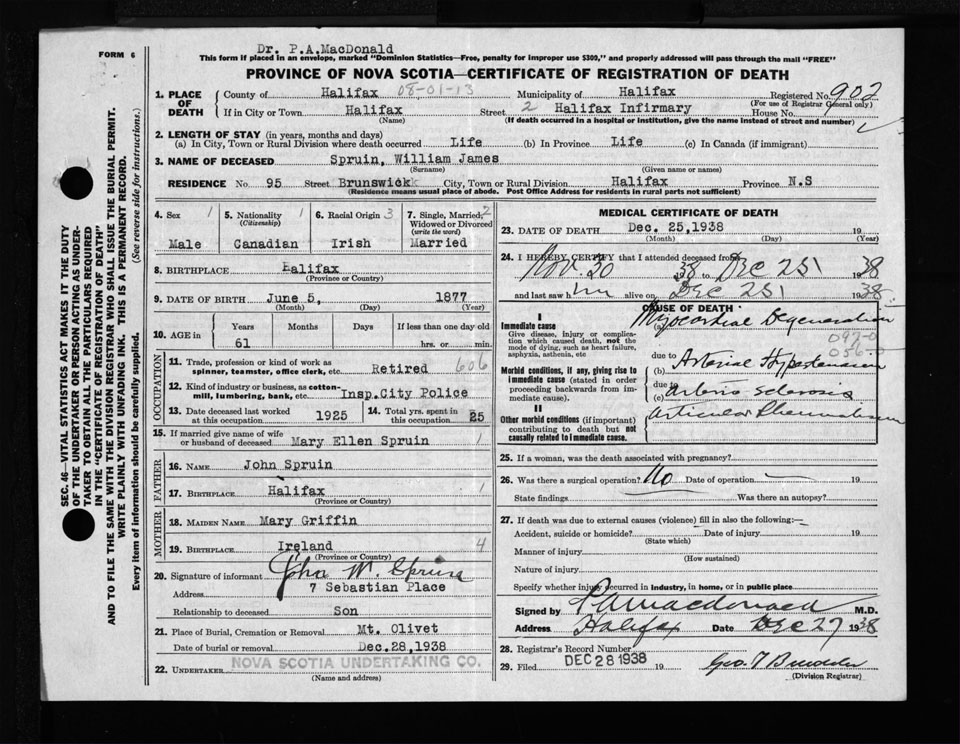 FORM 6
Dr. P.A.MacDonald
This form if placed in an envelope, marked "Dominion Statistics—Free, penalty for improper use $300," and properly addressed will pass through the mail "FREE"
PROVINCE OF NOVA SCOTIA—CERTIFICATE OF REGISTRATION OF DEATH
1. PLACE OF DEATH County of Halifax 08-01-13 Municipality of Halifax Registered No. 902
(For use of Registrar General only)
If in City or Town Halifax Street 2 Halifax Infirmary House No.
(Name) (If death occurred in a hospital or institution, give the name instead of street and number)
2. LENGTH OF STAY (in years, months and days)
(a) In City, Town or Rural Division where death occurred Life (b) In Province Life (c) In Canada (if immigrant)
3. NAME OF DECEASED Spruin, William James
(Surname) (Given name or names)
RESIDENCE No. 95 Street Brunswick City, Town or Rural Division Halifax Province N.S
(Residence means usual place of abode. Post Office Address for residents in rural parts not sufficient)
4. Sex 1 Male
5. Nationality 1 (Citizenship) Canadian
6. Racial Origin 3 Irish
7. Single, Married, 2 Widowed or Divorced (write the word) Married
8. BIRTHPLACE Halifax
(Province or Country)
9. DATE OF BIRTH June 5, 1877
(Month) (Day) (Year)
10. AGE in Years 61 Months Days If less than one day old hrs. or min.
OCCUPATION
11. Trade, profession or kind of work as spinner, teamster, office clerk, etc. Retired 606
12. Kind of industry or business, as cotton-mill, lumbering, bank, etc. Insp.City Police
13. Date deceased last worked at this occupation 1925
14. Total yrs. spent in this occupation 25
15. If married give name of wife or husband of deceased Mary Ellen Spruin 1
FATHER
16. NAME John Spruin
17. BIRTHPLACE Halifax 1
(Province or Country)
MOTHER
18. MAIDEN NAME Mary Griffin
19. BIRTHPLACE Ireland 4
(Province or Country)
20. Signature of informant John W. Spruin
Address 7 Sebastian Place
Relationship to deceased Son
21. Place of Burial, Cremation or Removal Mt. Olivet
Date of burial or removal Dec.28,1938
22. UNDERTAKER NOVA SCOTIA UNDERTAKING CO.
(Name and address)
MEDICAL CERTIFICATE OF DEATH
23. DATE OF DEATH Dec. 25,1938 19
(Month) (Day) (Year)
24. I HEREBY CERTIFY that I attended deceased from
Nov. 30 38 to Dec 251 1938
and last saw him alive on Dec 251 1938.
CAUSE OF DEATH
I
Immediate cause (a) Myocardial Degeneration
Give disease, injury or complication which caused death, not the mode of dying, such as heart failure, asphyxia, asthenia, etc
097-0
056-0
due to
Morbid conditions, if any, giving rise to immediate cause (stated in order proceeding backwards from immediate cause). (b) Arterial Hypertension
due to
(c) Arterio sclerosis
II
Other morbid conditions (if important) contributing to death but not causally related to immediate cause. Articular Rheumatism
25. If a woman, was the death associated with pregnancy?
26. Was there a surgical operation? No Date of operation 19
State findings Was there an autopsy?
27. If death was due to external causes (violence) fill in also the following:—
Accident, suicide or homicide? Date of injury 19
(State which)
Manner of injury
(How sustained)
Nature of injury
Specify whether injury occurred in industry, in home, or in public place
Signed by P.A. Macdonald M.D.
Address Halifax Date Dec 27 1938
28. Registrar's Record Number
29. Filed DEC 28 1938 19 Geo. T
(Division Registrar)
SEC. 46—VITAL STATISTICS ACT MAKES IT THE DUTY
OF THE UNDERTAKER OR PERSON ACTING AS UNDER-
TAKER TO OBTAIN ALL THE PARTICULARS REQUIRED
IN THE "CERTIFICATE OF REGISTRATION OF DEATH"
AND TO FILE THE SAME WITH THE DIVISION REGISTRAR WHO SHALL ISSUE THE BURIAL PERMIT.
WRITE PLAINLY WITH UNFADING INK. THIS IS A PERMANENT RECORD.
Every item of information should be carefully supplied. (See reverse side for instructions.)